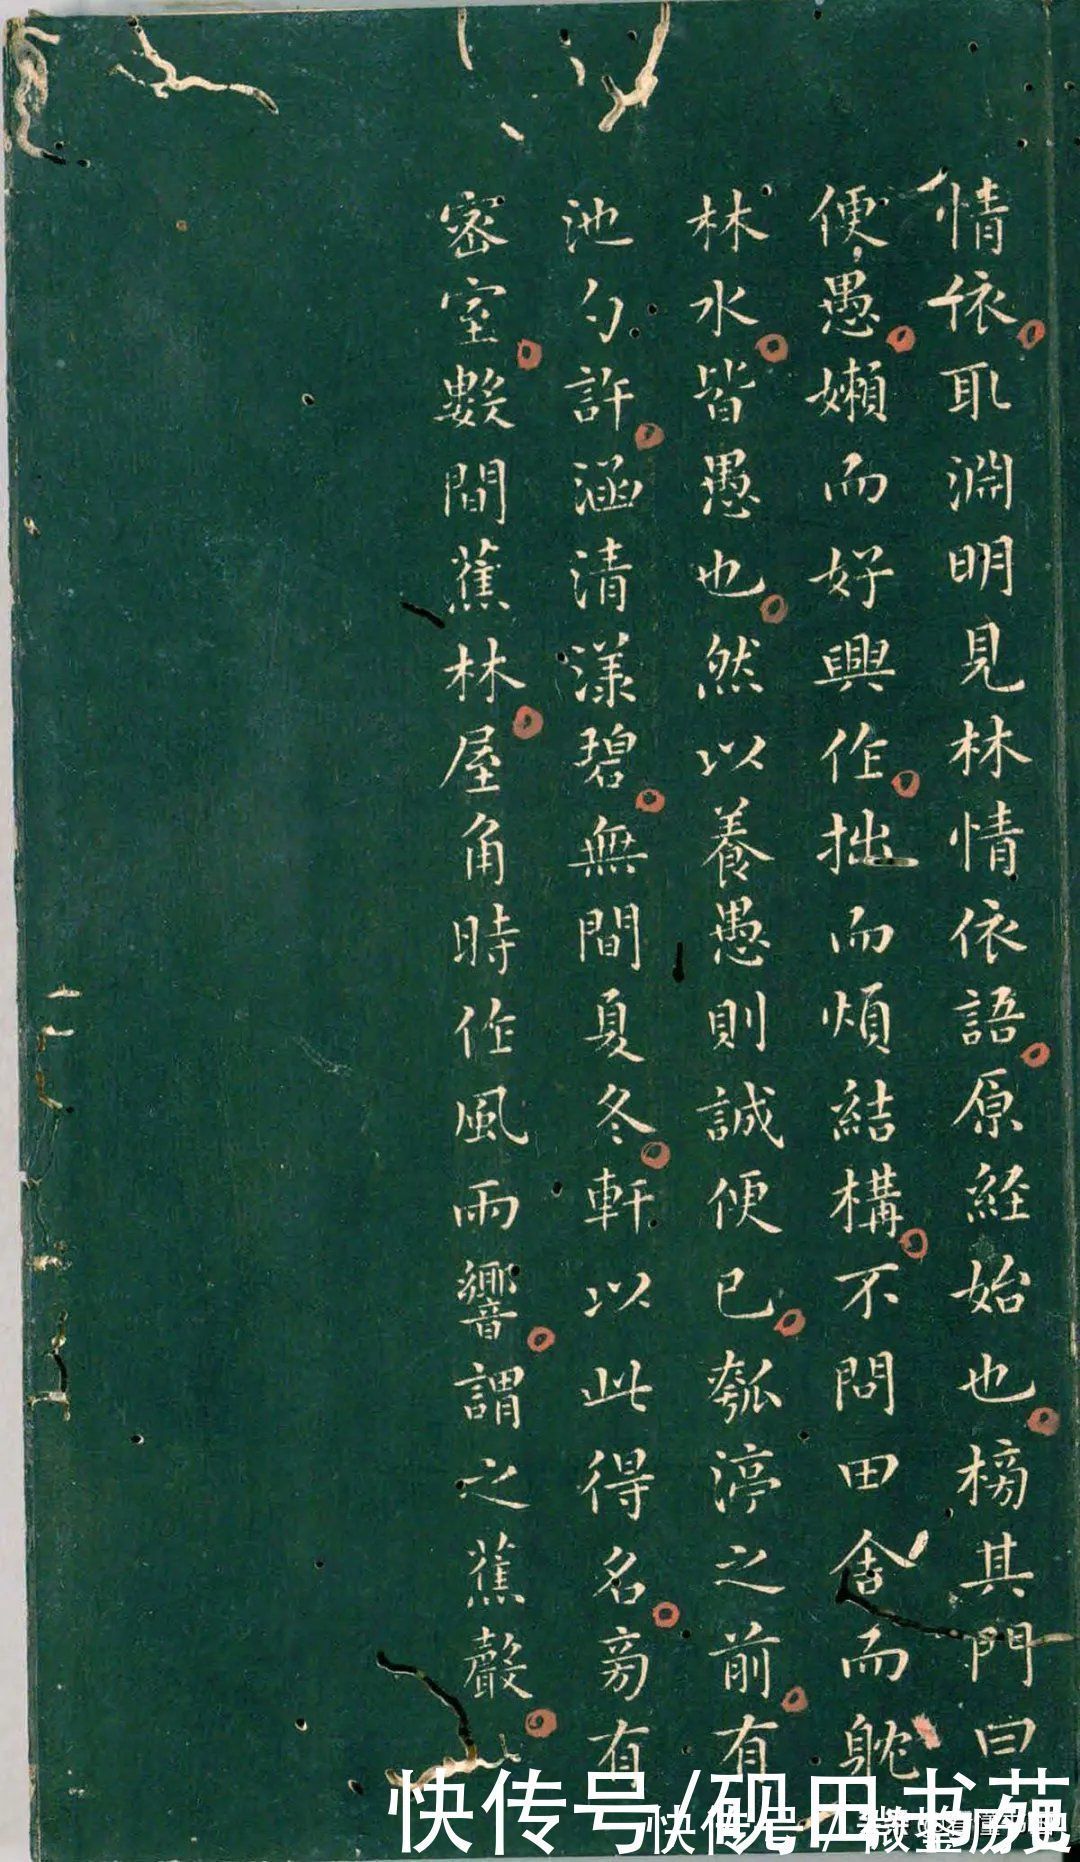 情依取淵明見林情依語原経始也榜其門曰
便愚嬾而好興作拙而煩結構不問田舍而躭
林水皆愚也然以養愚愚則誠便已瓠渟之前有
池勺許涵清漾碧無間夏冬軒以此得名旁有
密室數間蕉林屋角時作風雨響謂之蕉聲
快传号/砚田书苑